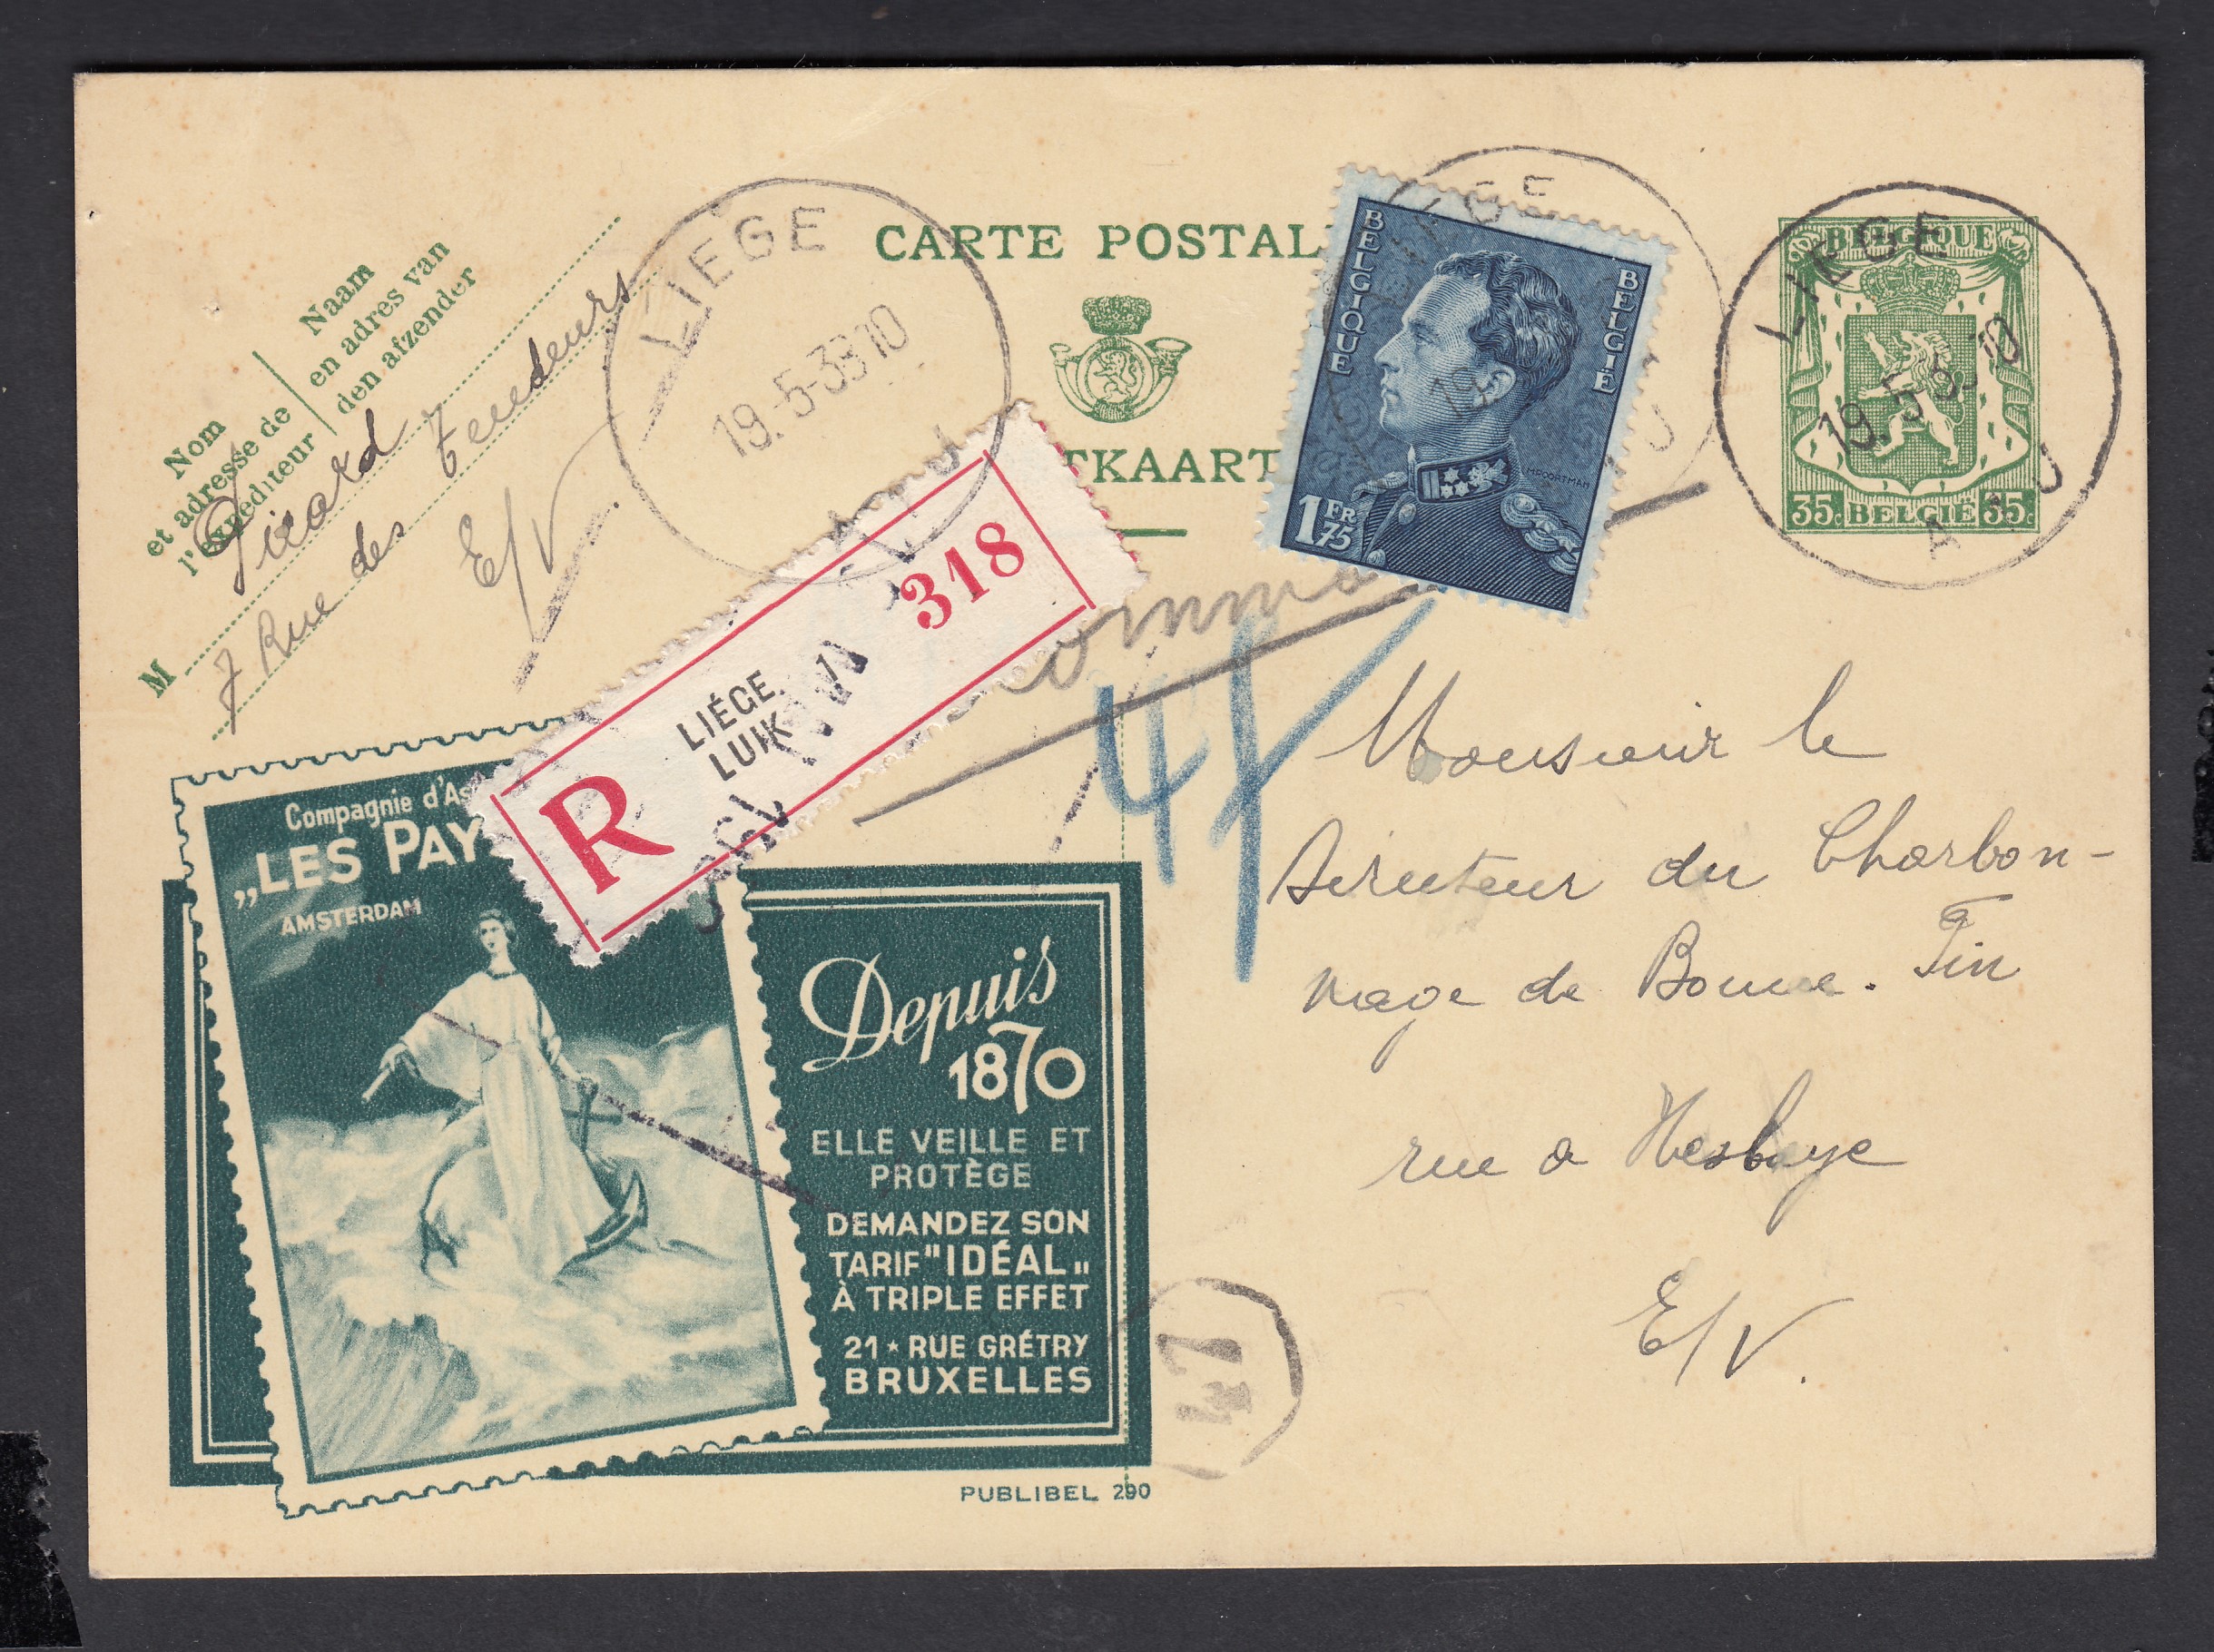 CARTE POSTAL
TKAART
Nom
et adresse de
l'expéditeur
Naam
en adres van
den afzender
M
7 Rue des
E/V
LIÉGE
19.-5-39 10
BELGIQUE
BELGIË
1FR75
MPOORTMAN
LIEGE
19
LIEGE
19.-5-3 10
A
BELGIQUE
35c BELGIË 35c
R
LIÉGE 1
LUIK 1
318
4f
Monsieur le
Directeur du Charbon-
nage de Bonne. Fin
rue de Hesbaye
E/V.
Compagnie d'As
„LES PAY
AMSTERDAM
Depuis
1870
ELLE VEILLE ET
PROTÈGE
DEMANDEZ SON
TARIF "IDÉAL„
À TRIPLE EFFET
21 ★ RUE GRÉTRY
BRUXELLES
PUBLIBEL 290
47